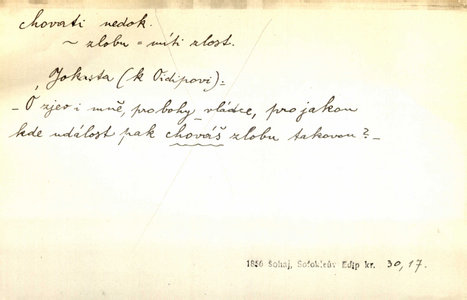 chovati nedok.
~ zlobu = míti zlost.
Jokasta (k Oidipovi):
– Ó zjev i mně, probohy vládce, pro jakou
kde událost pak chováš zlobu takovou? –
1856 Šohaj, Sofokleův Edip kr. 30,17.